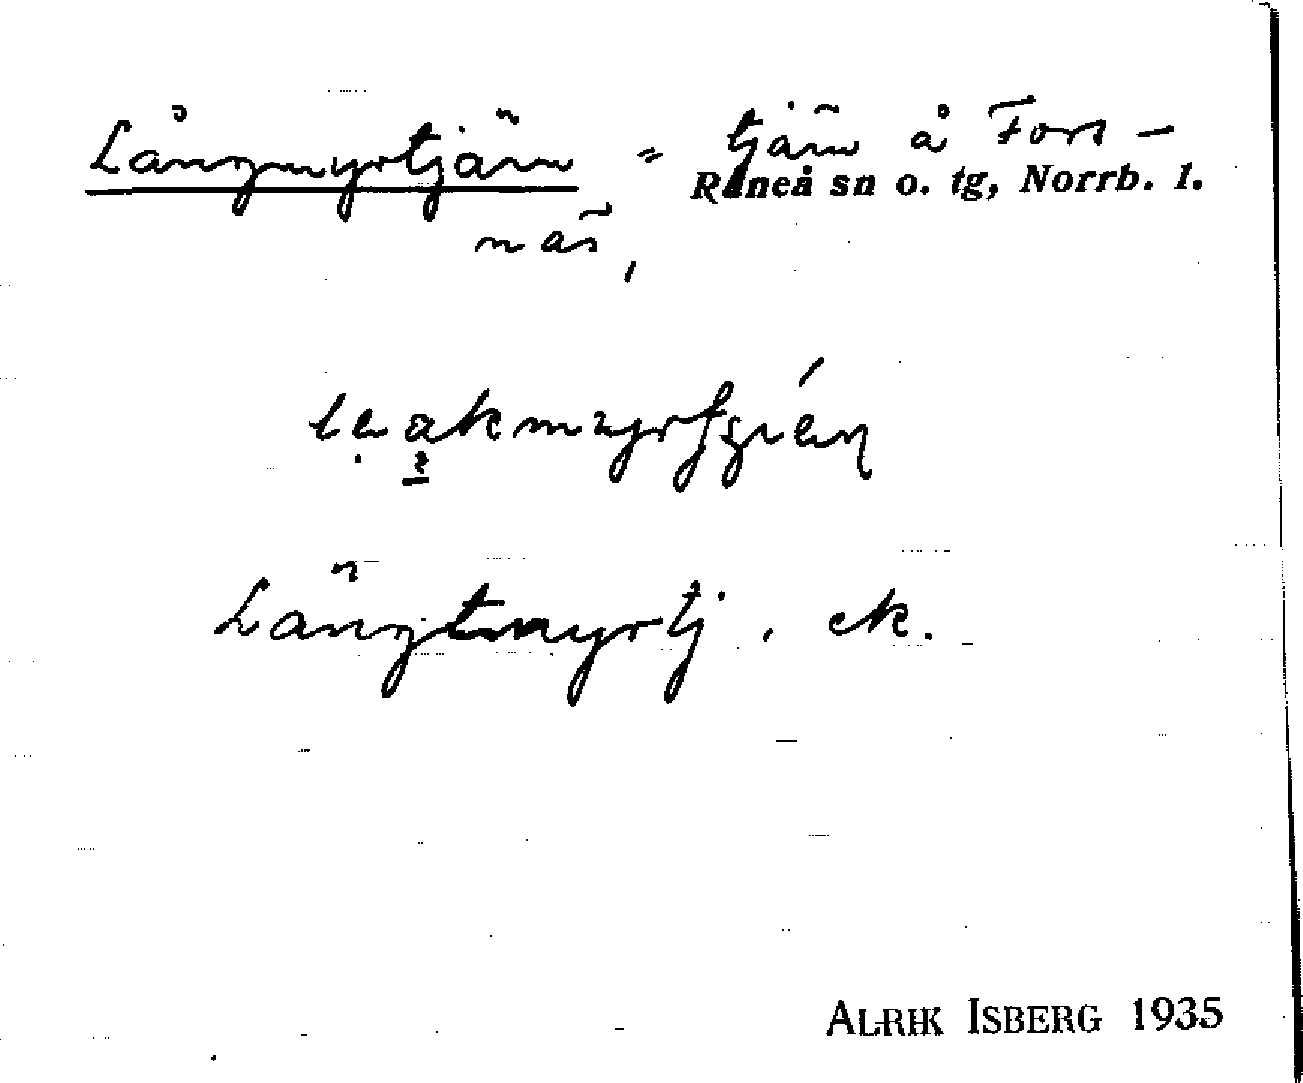 Långmyrtjärn = tjärn å Fors-
Råneå sn o. tg, Norrb. l.
näs,
Långtmyrtj. ek.
ALRIK ISBERG 1935